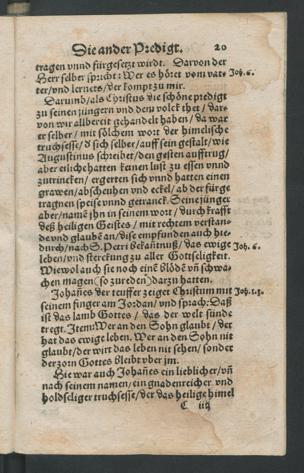 Die ander Predigt. 20
tragen vnnd fürgesetzt wirdt. Darvon der
Herr selber spricht: Wer es höret vom vat- Joh. 6.
ter/vnd lernets/der kompt zu mir.
Darumb/als Christus die schöne predigt
zu seinen jüngern vnd dem volck thet/dar-
von wir allbereit gehandelt haben/da war
er selber/mit sölchem wort der himelische
truchsesse/d sich selber/auff sein gestalt/wie
Augustinus schreibet/den gesten aufftrug/
aber etliche hatten keinen lust zu essen vnnd
zutrincken/ergerten sich vnnd hatten einen
grawen/abscheuhen vnd eckel/ab der fürge
tragnen speise vnnd getranck. Seine jünger
aber/namē jhn in seinem wort/durch krafft
deß heiligen Geistes/mit rechtem verstan-
de vnd glaubē an/die empfunden auch hie-
durch/nach S. Petri bekantnuß/das ewige Joh. 6.
leben/vnd sterckung zu aller Gottseligkeit.
Wiewol auch sie noch eine blöde vn̄ schwa-
chen magen (so zu reden) darzu hatten.
Johañes der teuffer zeiget Christum mit Joh. 1. 3.
seinem finger am Jordan/vnd sprach: Daß
ist das lamb Gottes/das der welt sünde
tregt. Item: Wer an den Sohn glaubt/der
hat das ewige leben. Wer an den Sohn nit
glaubt/der wirt das leben nit sehen/sonder
der zorn Gottes bleibt vber jm.
Hie war auch Johañes ein lieblicher/vn̄
nach seinem namen/ein gnadenreicher vnd
holdseliger truchsesse/der das heilige himel
C iiij